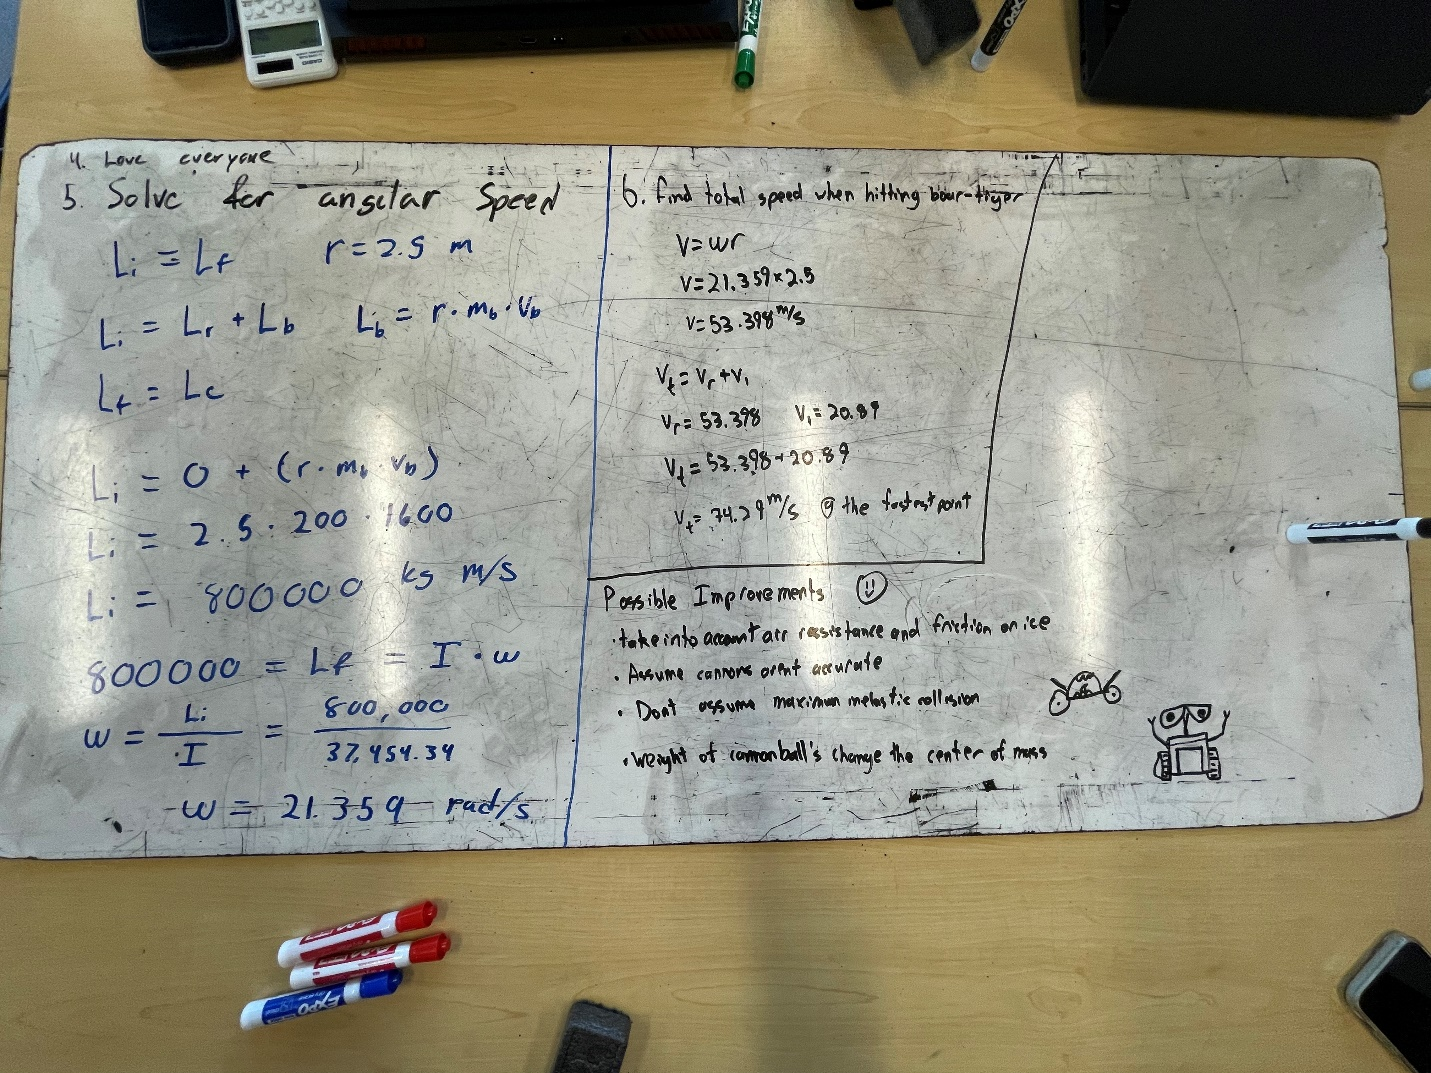 4. Love everyone
5. Solve for angular Speed
Li = Lf r = 2.5 m
Li = Lr + Lb Lb = r · mb · vb
Lf = Lc
Li = 0 + (r · mb · vb)
Li = 2.5 · 200 · 1600
Li = 800000 kg m/s
800000 = Lf = I · w
w = Li / I = 800,000 / 37,454.34
w = 21.359 rad/s
6. find total speed when hitting bear-tiger
V = wr
V = 21.359 × 2.5
V = 53.398 m/s
Vt = Vr + V1
Vr = 53.398 V1 = 20.89
Vt = 53.398 + 20.89
Vt = 74.29 m/s @ the fastest point
Possible Improvements
· take into account air ressistance and friction on ice
· Assume cannons arent accurate
· Dont assume maximum inelastic collision
· weight of cannonball's change the center of mass
EXPO
CASIO